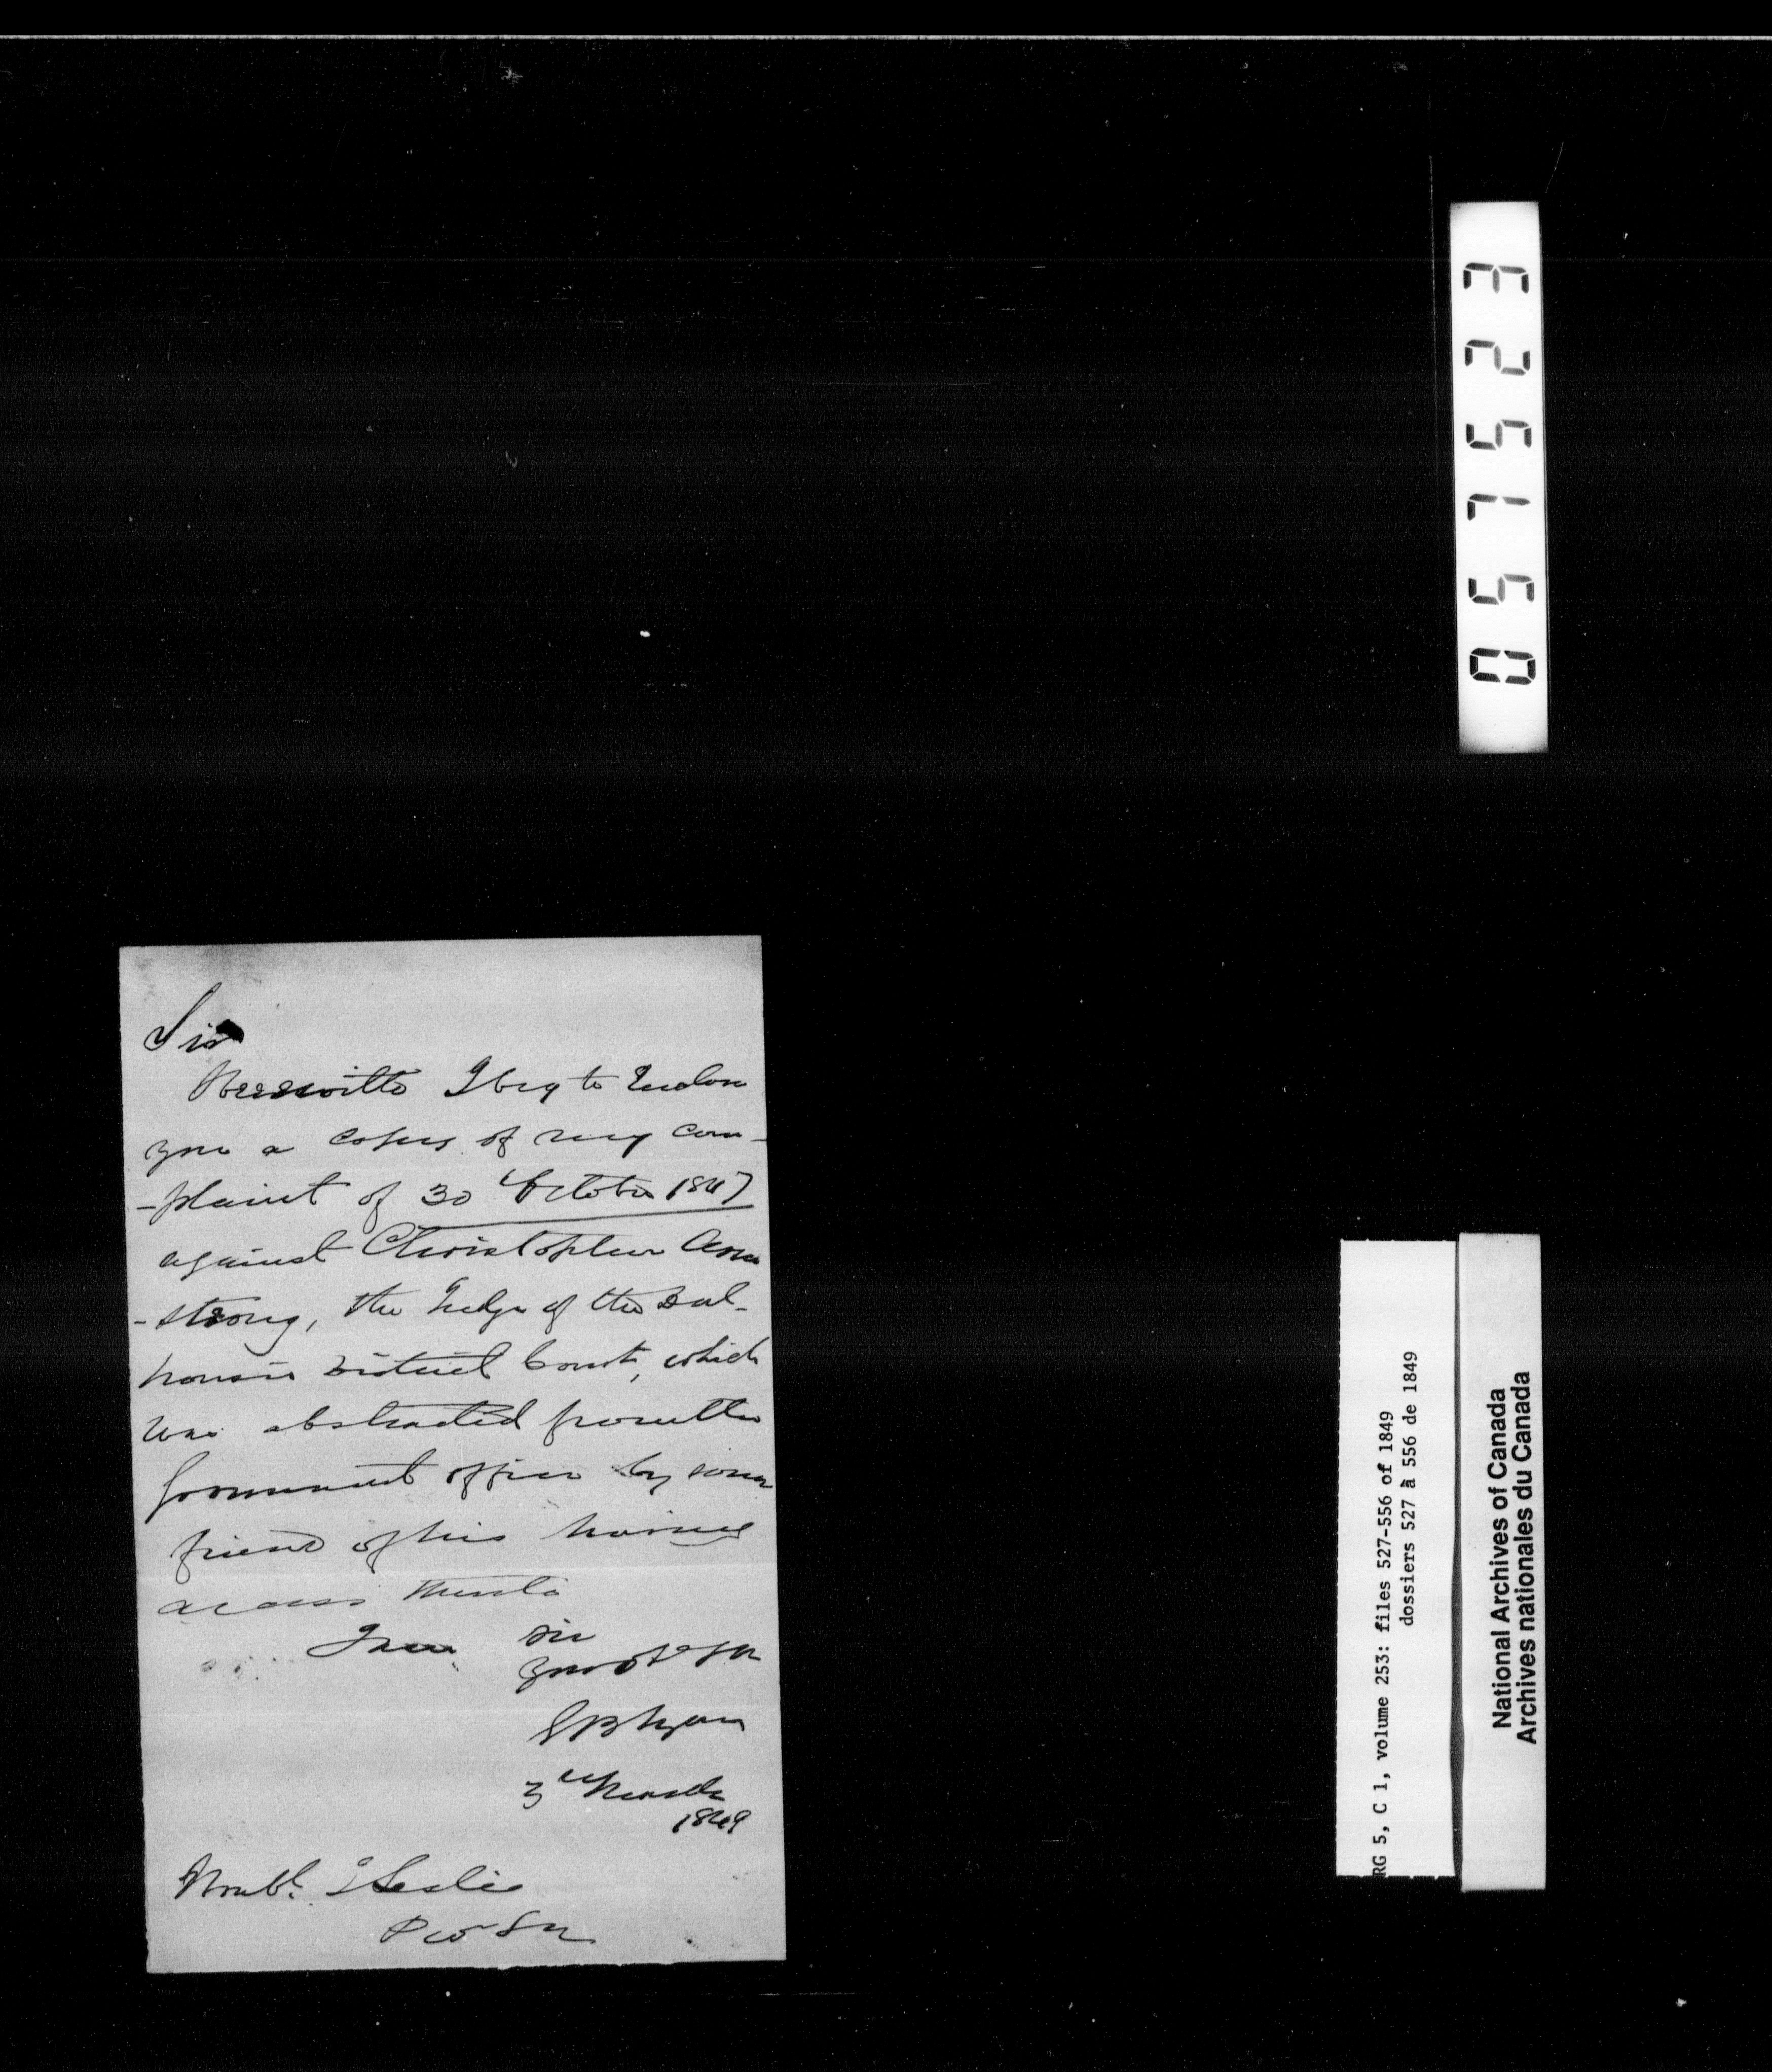 Sir
Herewith I beg to Enclose
you a Copy of my com-
-plaint of 30 October 1847
against Christopher Arm
-strong, the Judge of the Dal-
housie District Court, which
was abstracted from the
Government office by some
friend of his having
access thereto
I am Sir
your Ob Sr
GB Lyon
3 March
1849
Honble J Leslie
Pro Sec
057523
RG 5, C 1, volume 253: files 527-556 of 1849
dossiers 527 à 556 de 1849
National Archives of Canada
Archives nationales du Canada